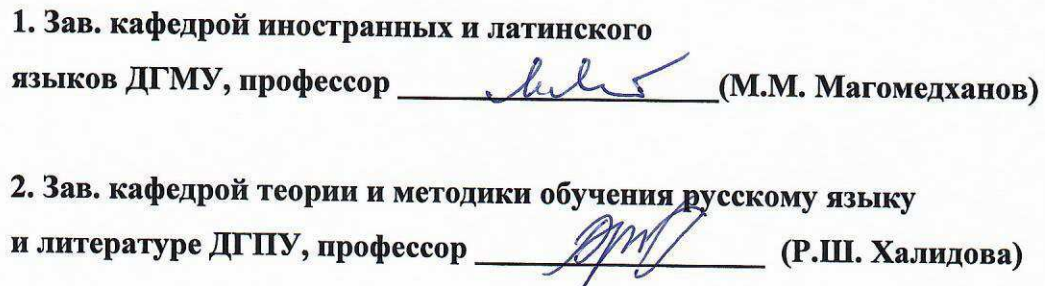 1. Зав. кафедрой иностранных и латинского
языков ДГМУ, профессор ____________ (М.М. Магомедханов)
2. Зав. кафедрой теории и методики обучения русскому языку
и литературе ДГПУ, профессор ____________ (Р.Ш. Халидова)